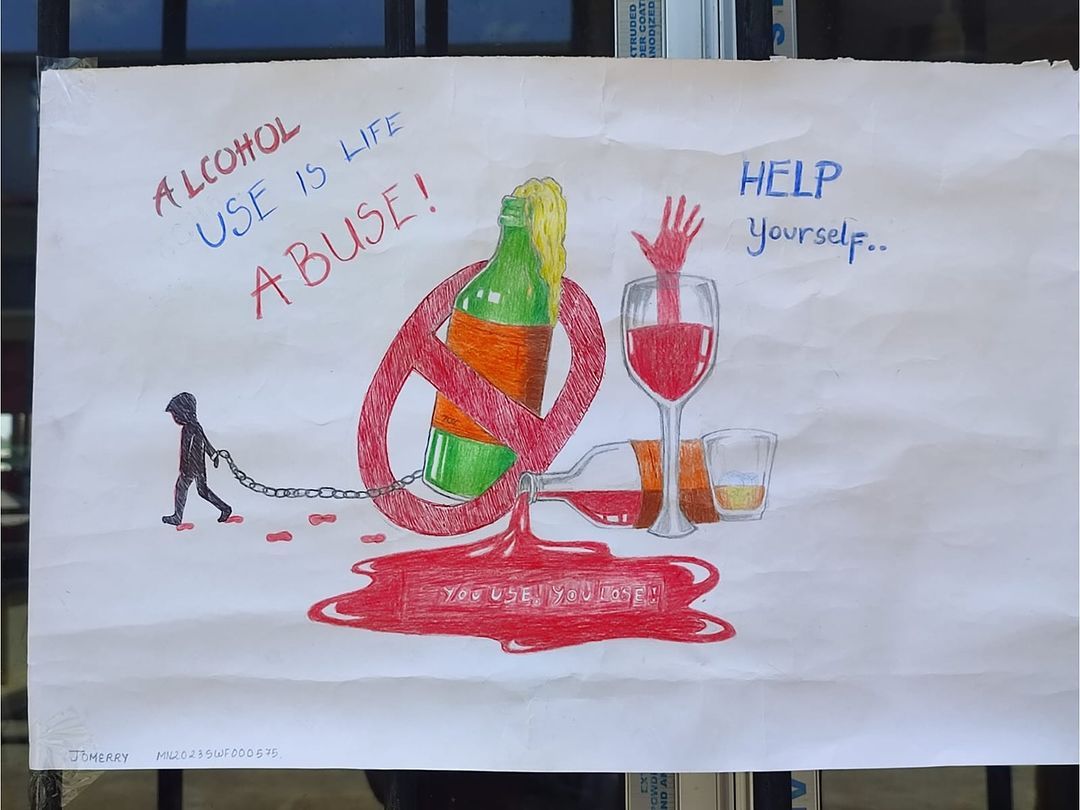 ALCOHOL
USE IS LIFE
ABUSE!
HELP
Yourself..
YOU USE! YOU LOSE!
JOMERRY